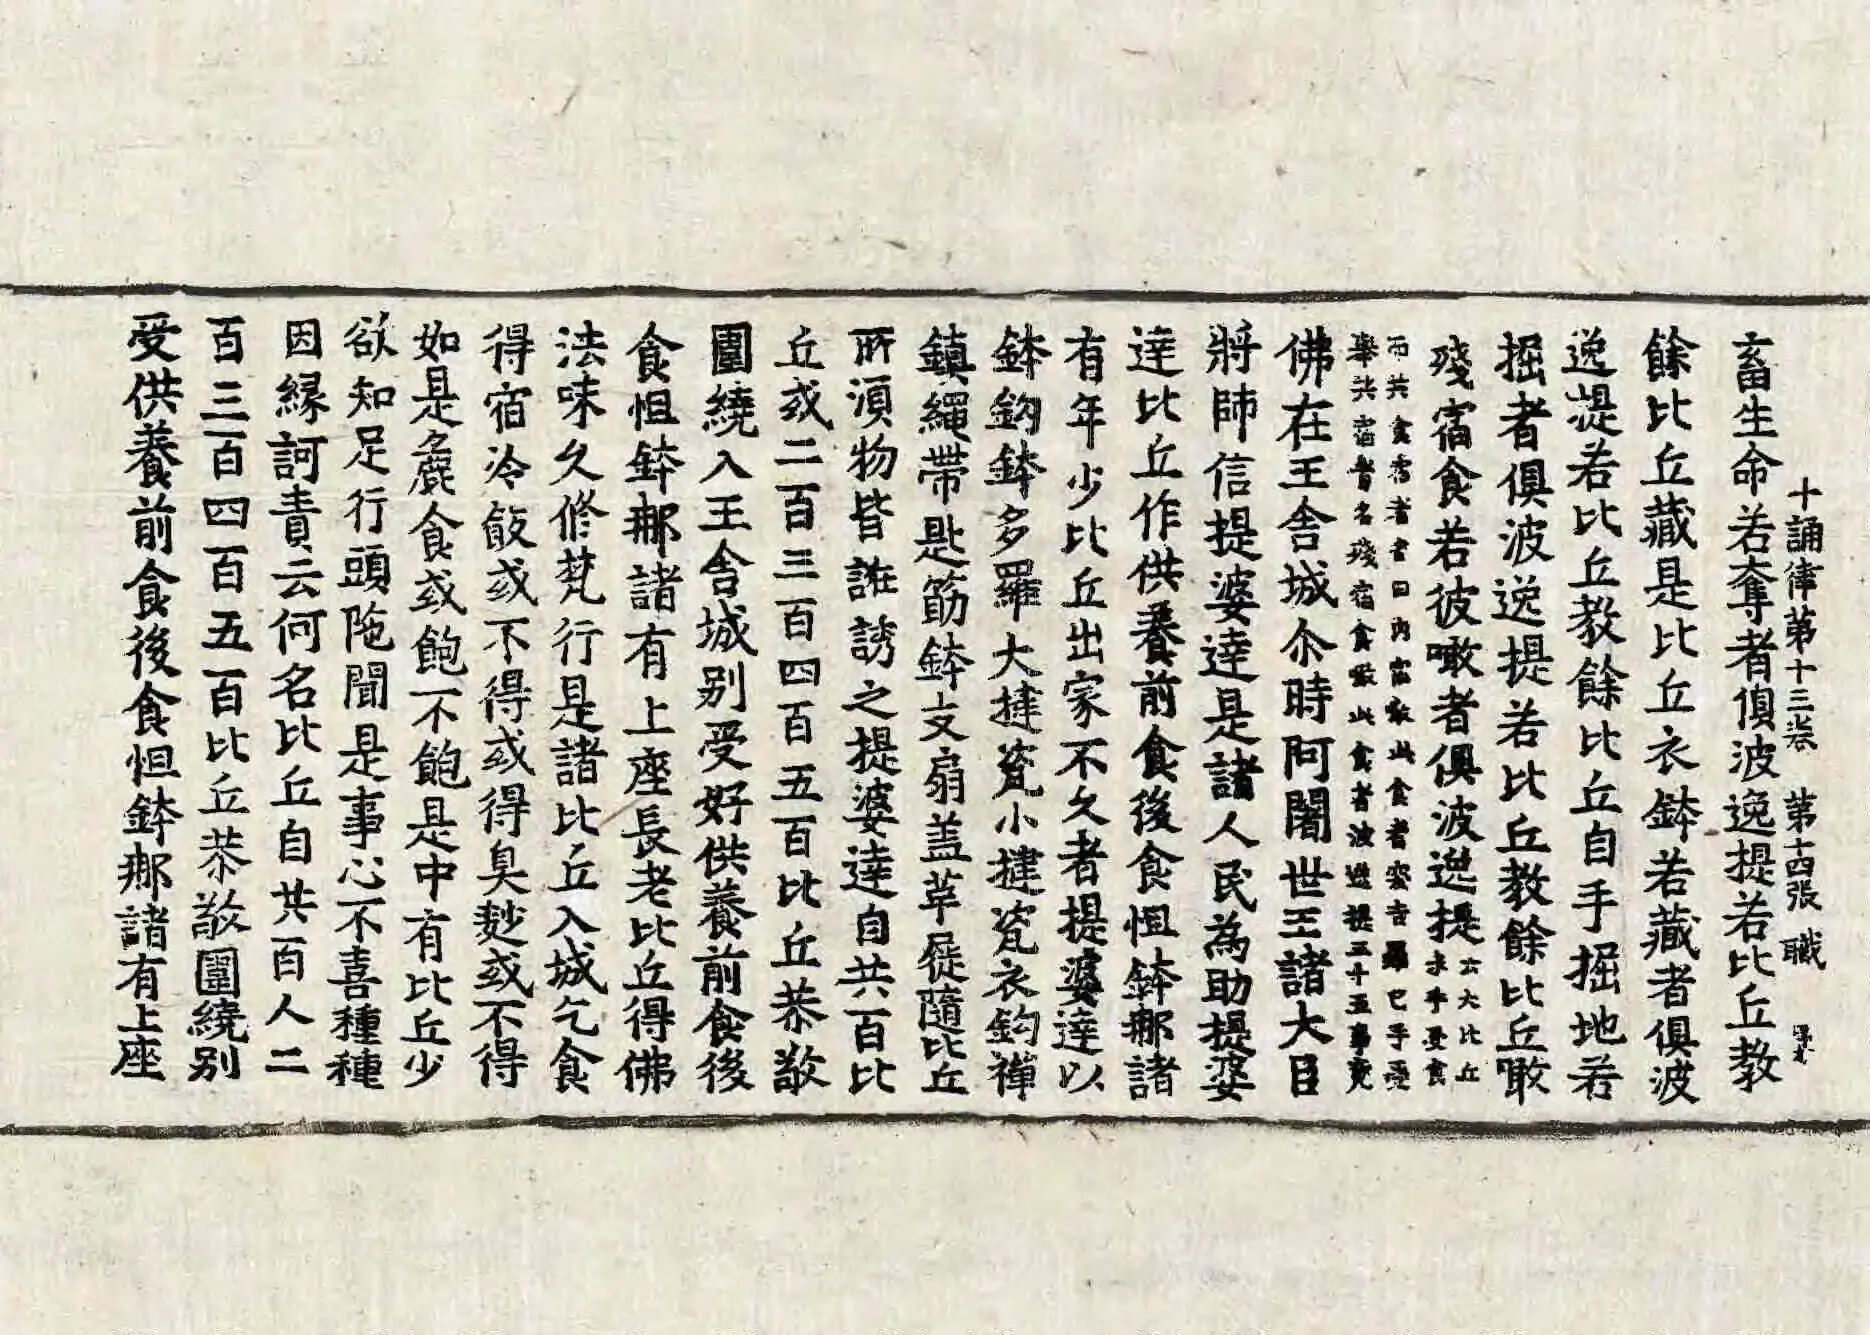 十誦律第十三卷 第十四張 職
畜生命若奪者俱波逸提若比丘教
餘比丘藏是比丘衣鉢若藏者俱波
逸提若比丘教餘比丘自手掘地若
掘者俱波逸提若比丘教餘比丘噉
殘宿食若彼噉者俱波逸提
佛在王舍城尒時阿闍世王諸大目
將帥信提婆達是諸人民為助提婆
達比丘作供養前食後食怛鉢那諸
有年少比丘出家不久者提婆達以
鉢鉤鉢多羅大揵瓷小揵瓷衣鉤禪
鎮繩帶匙筯鉢支扇盖革屣隨比丘
所湏物皆誑誘之提婆達自共百比
丘或二百三百四百五百比丘恭敬
圍繞入王舍城别受好供養前食後
食怛鉢那諸有上座長老比丘得佛
法味久修梵行是諸比丘入城乞食
得宿冷飯或不得或得臭麨或不得
如是麁食或飽不飽是中有比丘少
欲知足行頭陁聞是事心不喜種種
因緣訶責云何名比丘自共百人二
百三百四百五百比丘恭敬圍繞别
受供養前食後食怛鉢那諸有上座